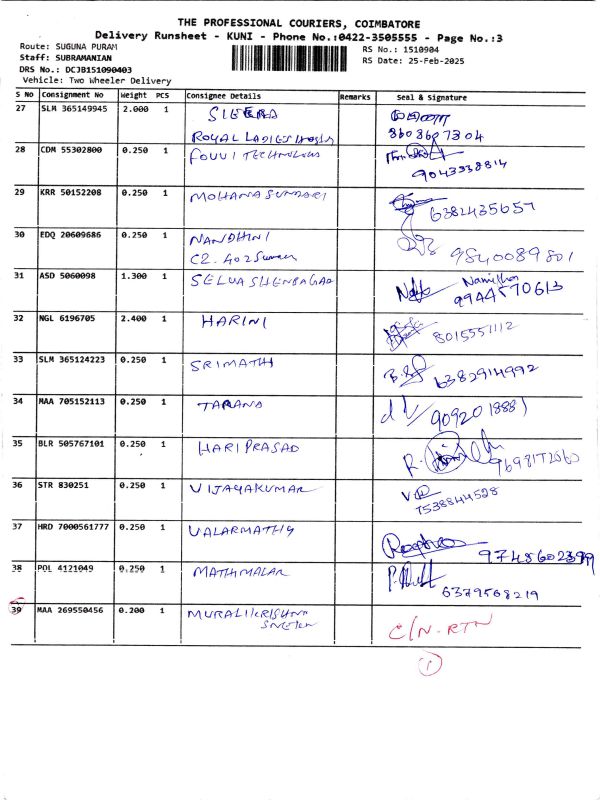 THE PROFESSIONAL COURIERS, COIMBATORE
Delivery Runsheet - KUNI - Phone No.:0422-3505555 - Page No.:3
Route: SUGUNA PURAM
RS No.: 1510904
Staff: SUBRAMANIAN
RS Date: 25-Feb-2025
DRS No.: DCJB151090403
Vehicle: Two Wheeler Delivery
S No Consignment No Weight PCS Consignee Details Remarks Seal & Signature
27 SLM 365149945 2.000 1
ROYAL LADIES 8608607304
28 CDM 55302800 0.250 1 FOUVI TECHNOLOGIES
9043338814
29 KRR 50152208 0.250 1 MOHANA SUNDARI 6382435657
30 EDQ 20609686 0.250 1 NANDHINI
C2. 402 9840089801
31 ASD 5060098 1.300 1 SELVA SHENBAGAD Namitha
9944570613
32 NGL 6196705 2.400 1 HARINI 8015551112
33 SLM 365124223 0.250 1 SRIMATHI 6382914992
34 MAA 705152113 0.250 1 TARANA 9092018881
35 BLR 505767101 0.250 1 HARI PRASAD
36 STR 830251 0.250 1 VIJAYAKUMAR
7538844528
37 HRD 7000561777 0.250 1 VALARMATHY
38 POL 4121049 0.250 1 MATHIMALAR
6379568219
39 MAA 269550456 0.200 1 MURALIKRISHNA
C/N-RTN
1